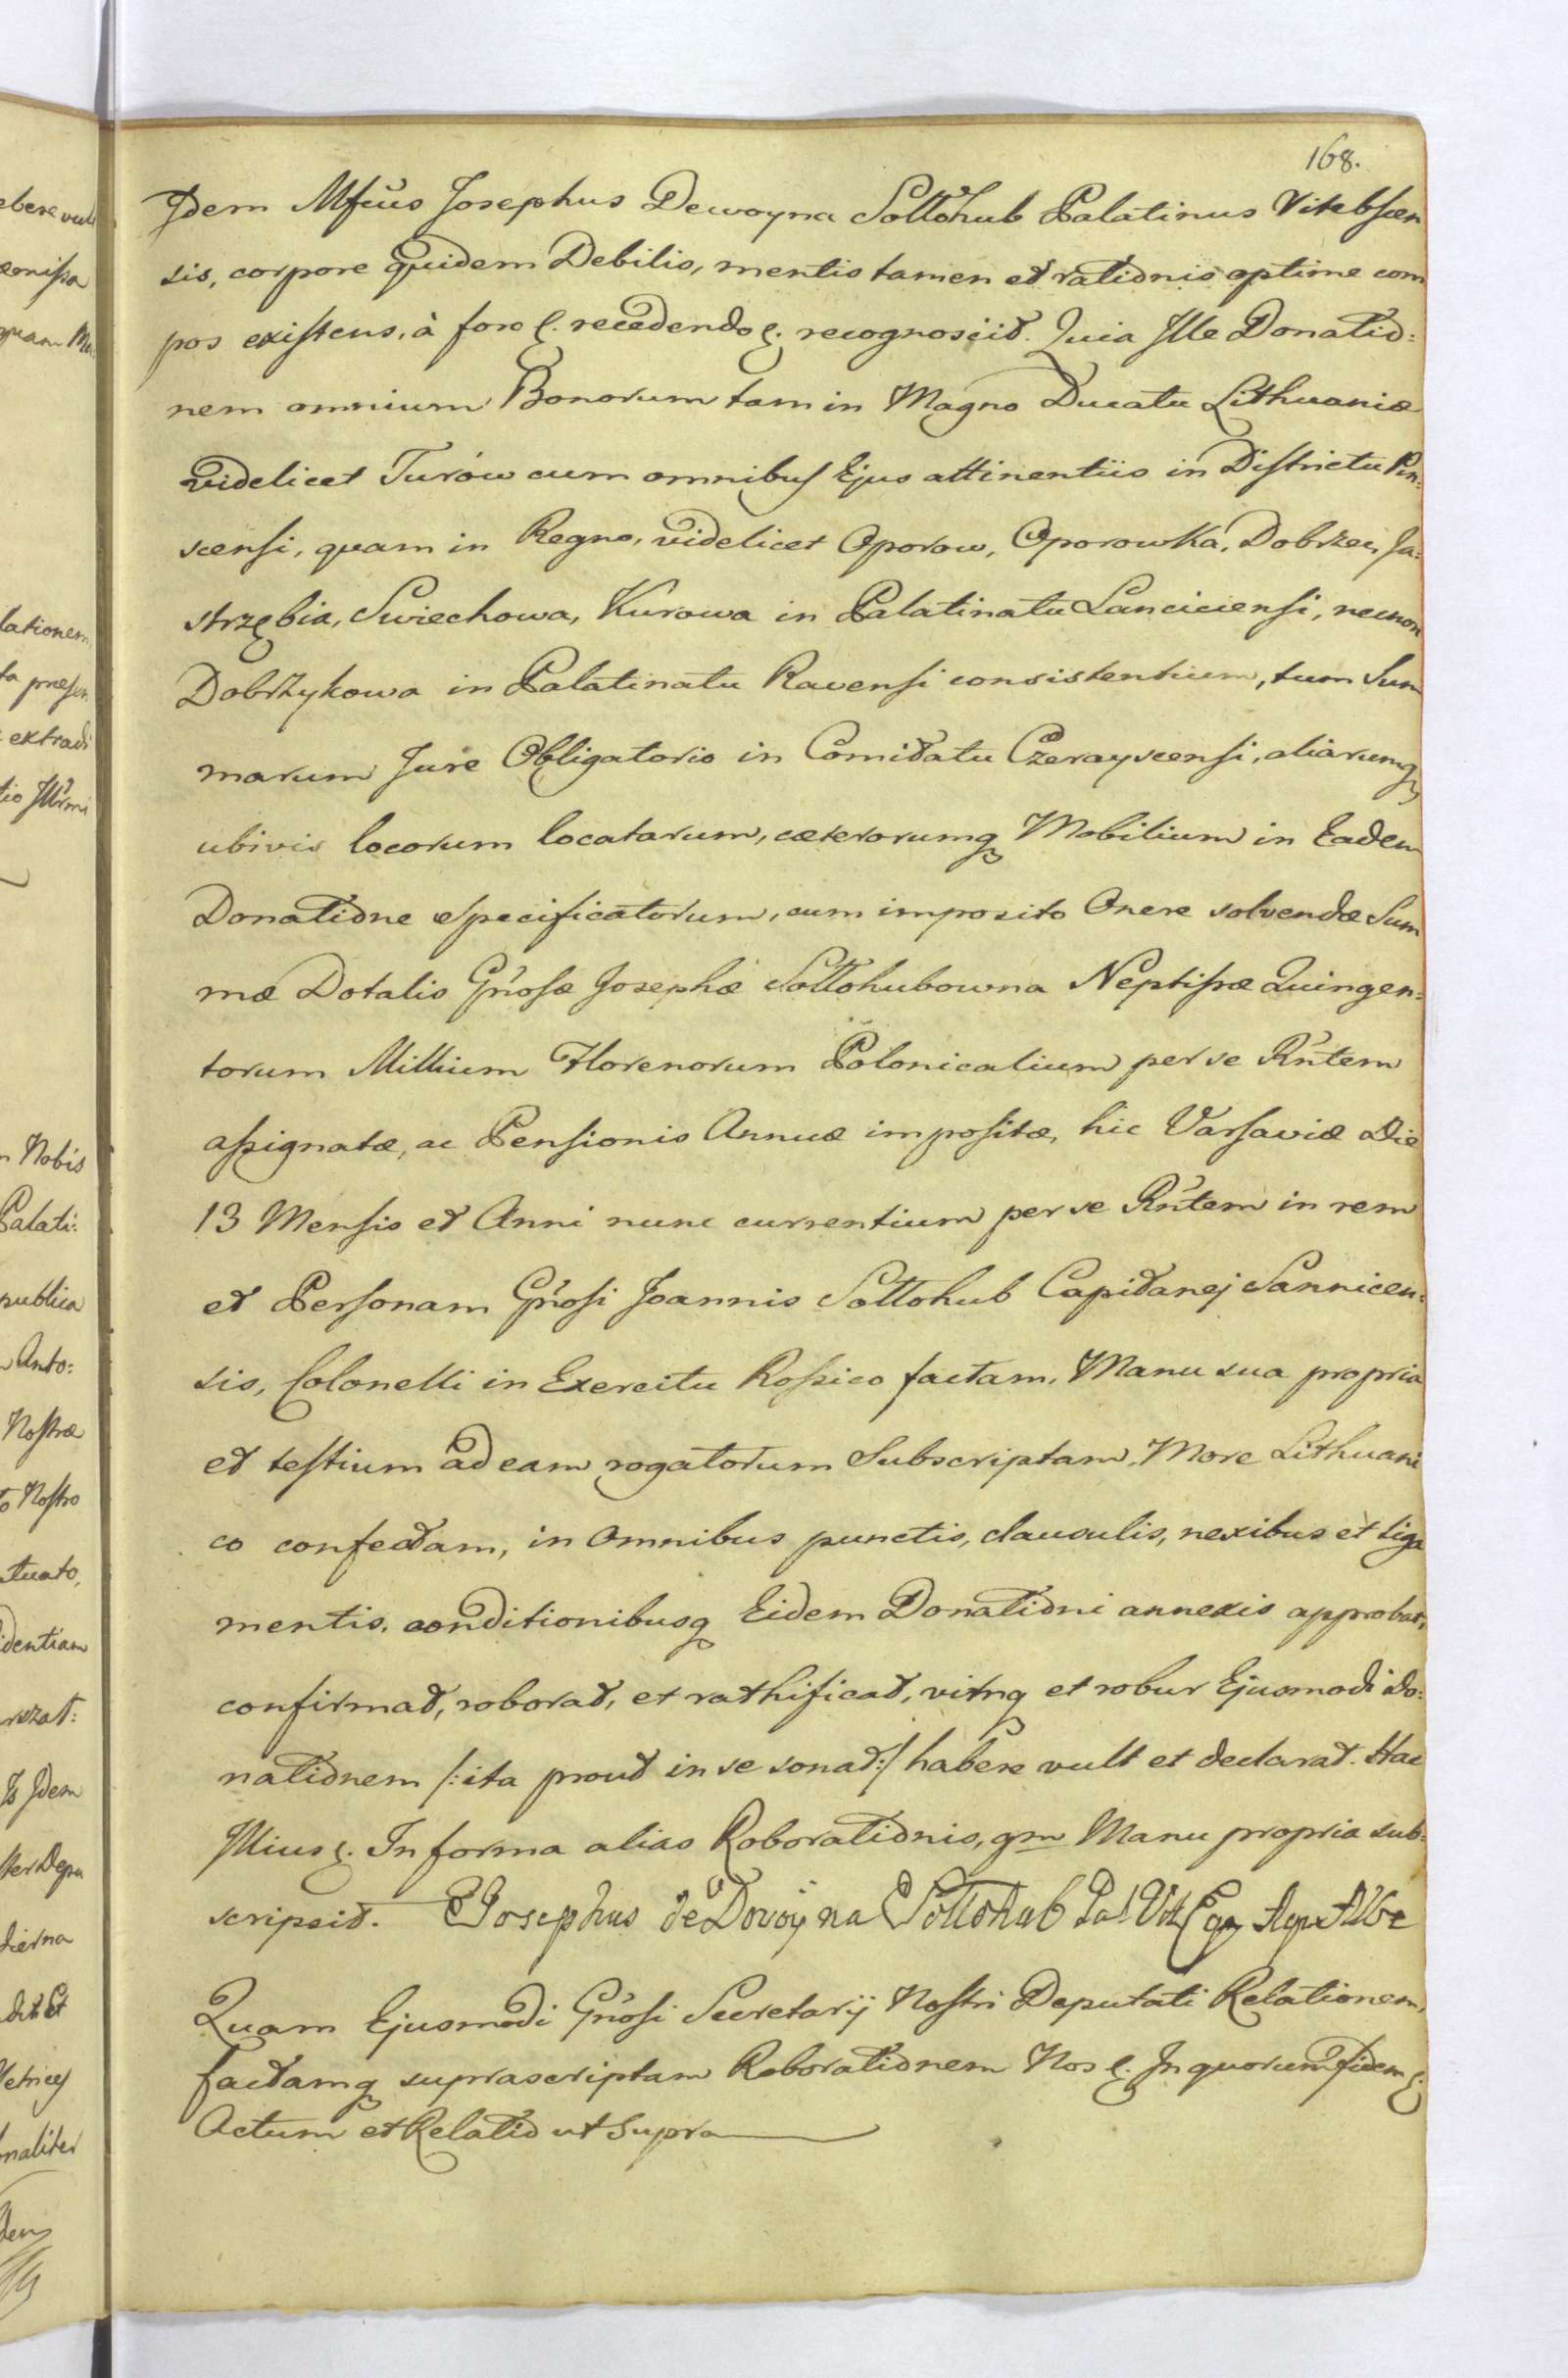 168.
Idem Mfcus Josephus Dewoyna Sołłohub Palatinus Vitebscen
sis, corpore quidem Debilis, mentis tamen et rationis optime com
pos existens, à foro &. recedendo &. recognoscit. Quia Ille Donatio:
nem omnium Bonorum tam in Magno Ducatu Lithuaniæ
videlicet Turów cum omnibus Ejus attinentiis in Districtu Pin:
scensi, quam in Regno, videlicet Oporow, Oporowka, Dobrzec, Ja:
strzębia, Swiechowa, Kurowa in Palatinatu Lanciciensi, necnon
Dobrzykowa in Palatinatu Ravensi consistentium, tum Sum
marum Jure Obligatorio in Comitatu Czerayscensi, aliarumq
ubivis locorum locatarum, cæterorumq Mobilium in Eadem
Donatione specificatorum, cum imposito Onere solvendæ Sum
mæ Dotalis Gnosæ Josephæ Sołłohubowna Neptissæ Quingen:
torum Millium Florenorum Polonicalium per se Rntem
assignatæ, ac Pensionis Annuæ impositæ, hic Varsaviæ Die
13 Mensis et Anni nunc currentium per se Rntem in rem
et Personam Gnosi Joannis Sołłohub Capitanej Sannicen:
sis, Colonelli in Exercitu Rossico factam, Manu sua propria
et testium ad eam rogatorum Subscriptam, More Lithuani
co confectam, in Omnibus punctis, clausulis, nexibus et liga
mentis, conditionibusq Eidem Donationi annexis approbat,
confirmat, roborat, et rathificat, vimq et robur Ejusmodi Do:
nationem /:ita prout in se sonat:/ habere vult et declarat. Hac
Illius &. In forma alias Roborationis, qm Manu propria sub:
scripsit. Josephus de Dovoyna Sołłohub Pal Vit
Quam Ejusmodi Gnosi Secretarij Nostri Deputati Relationem,
factamq suprascriptam Roborationem Nos &. In quorum fidem &.
Actum et Relatio ut Supra